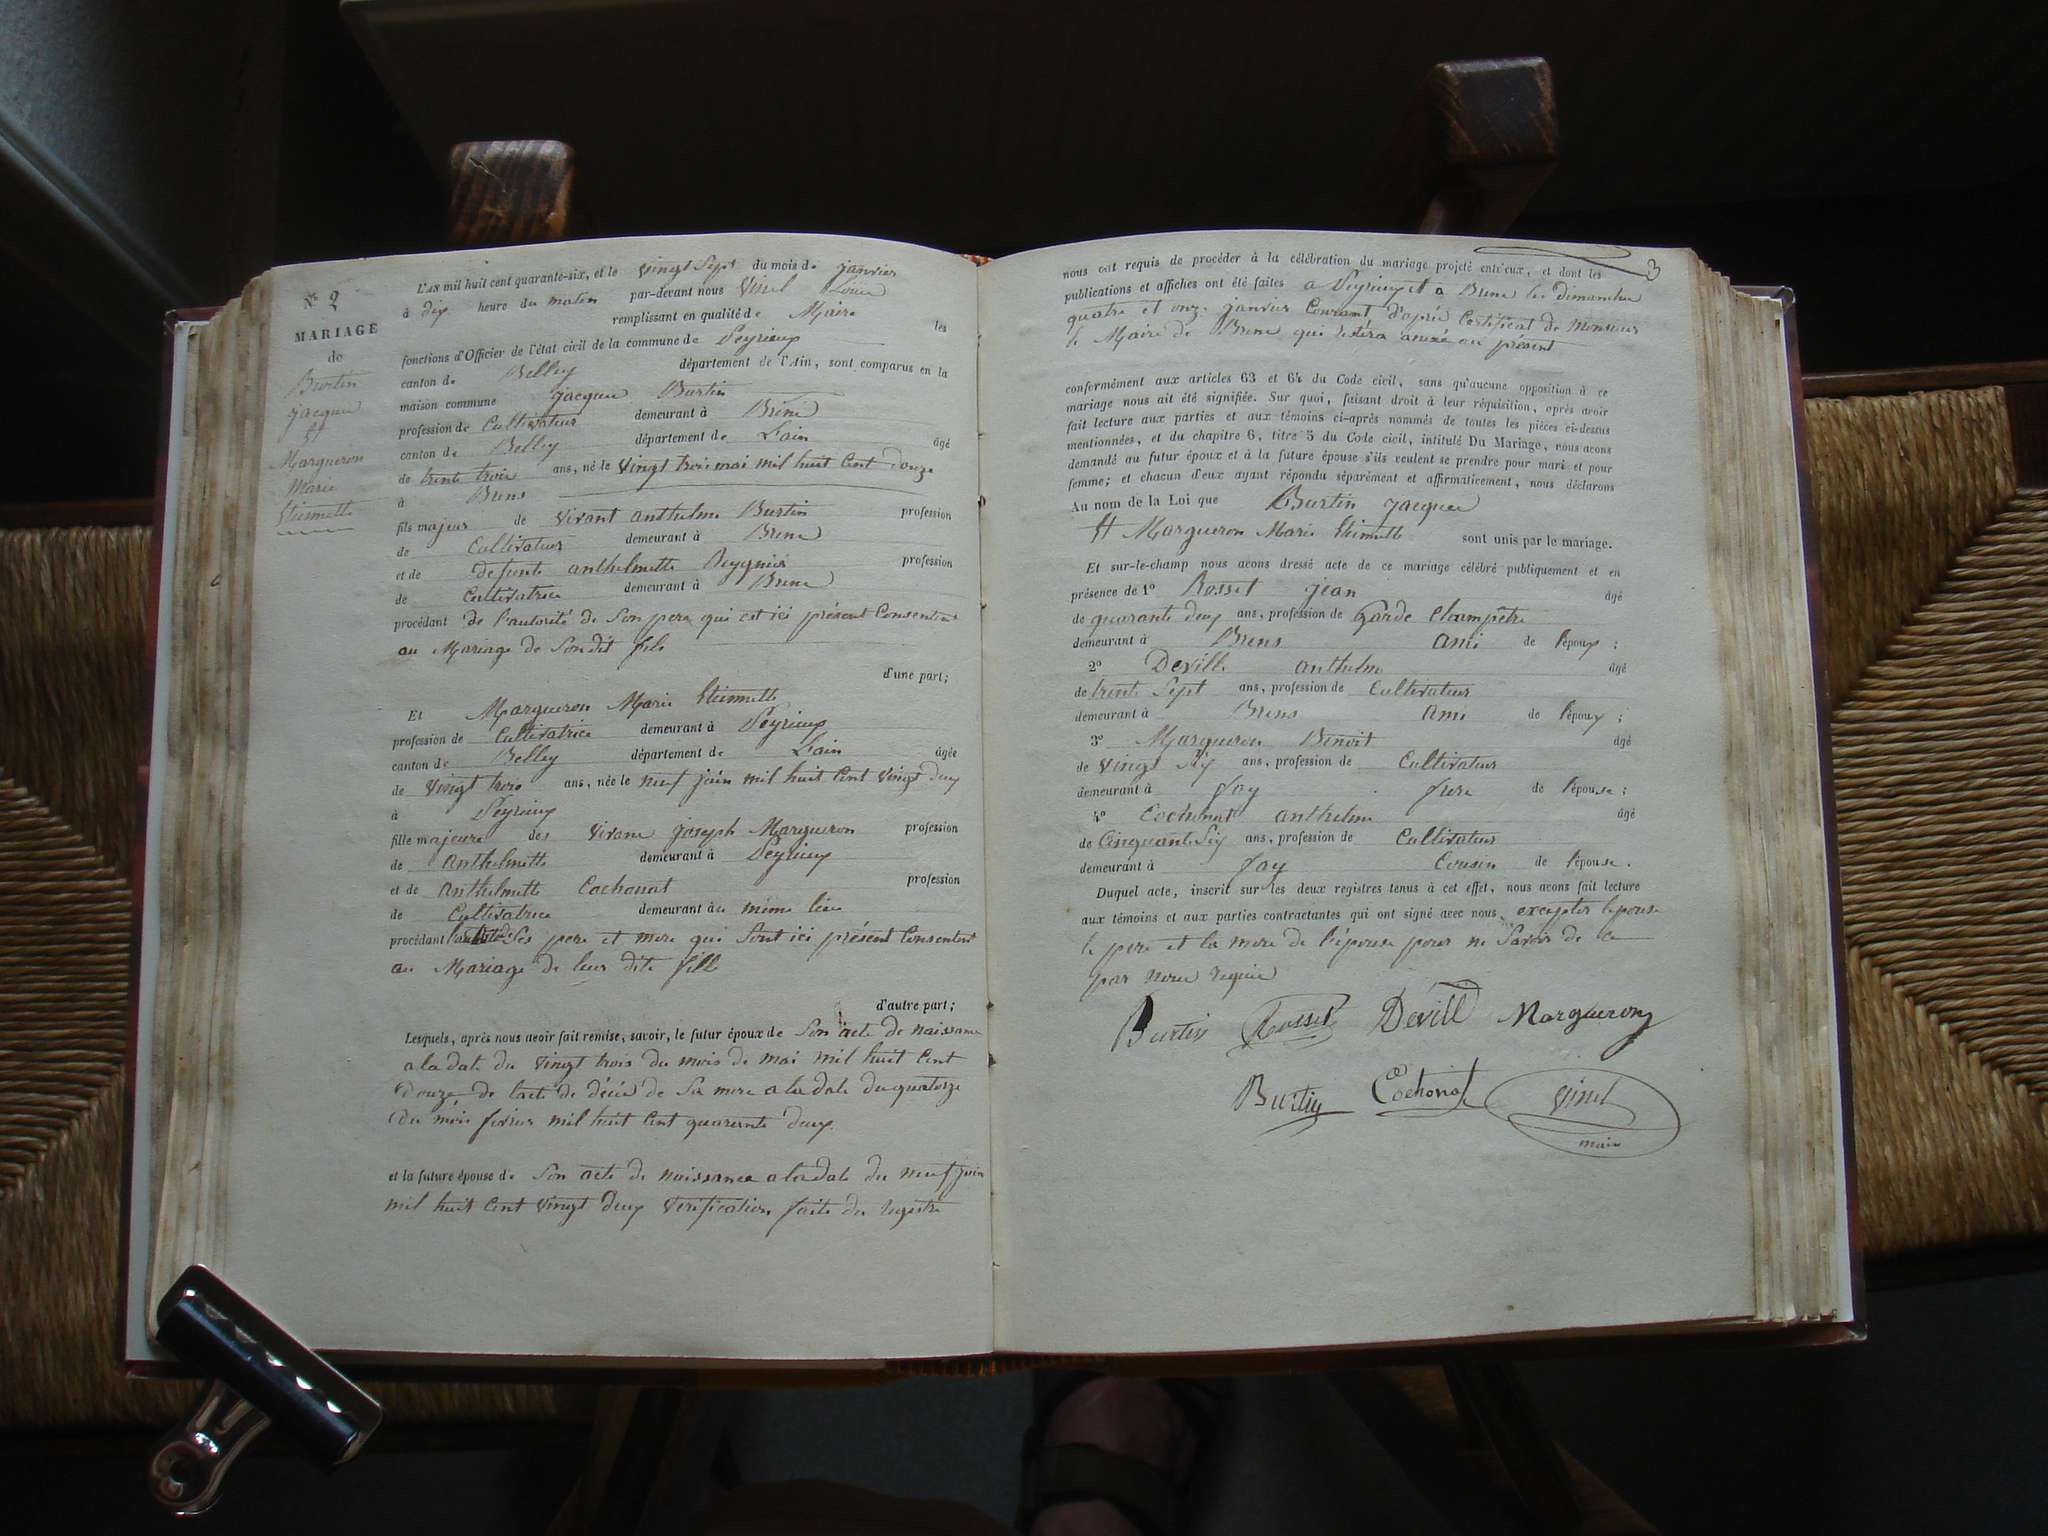 N° 2
MARIAGE
de
Burtin
jacques
et
Margueron
Marie
Etiennette
L'AN mil huit cent quarante-six, et le vingt Sept du mois de janvier
à dix heure du matin par-devant nous Vinel Louis
remplissant en qualité de Maire les
fonctions d'Officier de l'état civil de la commune de Peyrieux
canton de Belley département de l'Ain, sont comparus en la
maison commune jacques Burtin
profession de Cultivateur demeurant à Brens
canton de Belley département de L'ain âgé
de trente trois ans, né le vingt trois mai mil huit Cent douze
à Brens
fils majeur de vivant anthelme Burtin profession
de Cultivateur demeurant à Brens
et de defunte anthelmette profession
de Cultivatrice demeurant à Brens
procédant de l'autorité de Son pere qui est ici présent Consentant
au Mariage de Son dit fils
d'une part;
Et Margueron Marie Etiennette
profession de Cultivatrice demeurant à Peyrieux
canton de Belley département de L'ain âgée
de vingt trois ans, née le neuf juin mil huit Cent vingt deux
à Peyrieux
fille majeure des vivans joseph Margueron profession
de anthelmette demeurant à Peyrieux
et de anthelmette Cochonat profession
de Cultivatrice demeurant au même lieu
procédant de Ses pere et mere qui Sont ici présent Consentent
au Mariage de leur dite fille
d'autre part;
Lesquels, après nous avoir fait remise, savoir, le futur époux de Son acte de naissance
a la date du vingt trois du mois de mai mil huit Cent
douze de l'acte de décé de Sa mere a la date du quatorze
du mois fevrier mil huit Cent quarente deux.
et la future épouse de Son acte de naissance a la date du neuf juin
mil huit Cent vingt deux Verification faite du registre
3
nous ont requis de procéder à la célébration du mariage projeté entr'eux, et dont les
publications et affiches ont été faites a Peyrieux et a Brens les dimanches
quatre et onze janvier Courant d'après Certificat de Monsieur
le Maire de Brens qui restera annexé au présent
conformément aux articles 63 et 64 du Code civil, sans qu'aucune opposition à ce
mariage nous ait été signifiée. Sur quoi, faisant droit à leur réquisition, après avoir
fait lecture aux parties et aux témoins ci-après nommés de toutes les pièces ci-dessus
mentionnées, et du chapitre 6, titre 5 du Code civil, intitulé Du Mariage, nous avons
demandé au futur époux et à la future épouse s'ils veulent se prendre pour mari et pour
femme; et chacun d'eux ayant répondu séparément et affirmativement, nous déclarons
Au nom de la Loi que Burtin jacques
Et Margueron Marie Etiennette sont unis par le mariage.
Et sur-le-champ nous avons dressé acte de ce mariage célébré publiquement et en
présence de 1° Rosset jean âgé
de quarante deux ans, profession de garde Champêtre
demeurant à Brens ami de l'époux;
2° Deville anthelme âgé
de trente Sept ans, profession de Cultivateur
demeurant à Brens ami de l'époux;
3° Margueron Benoit âgé
de vingt Six ans, profession de Cultivateur
demeurant à fay frere de l'épouse;
4° Cochonat anthelme âgé
de Cinquante Six ans, profession de Cultivateur
demeurant à fay Cousin de l'épouse.
Duquel acte, inscrit sur les deux registres tenus à cet effet, nous avons fait lecture
aux témoins et aux parties contractantes qui ont signé avec nous excepter lepouse
le pere et la mere de l'épouse pour ne Savoir de ce
par nous requis
Burtin Rosset Devill Margueron
Burtin Cochonat Vinel
maire